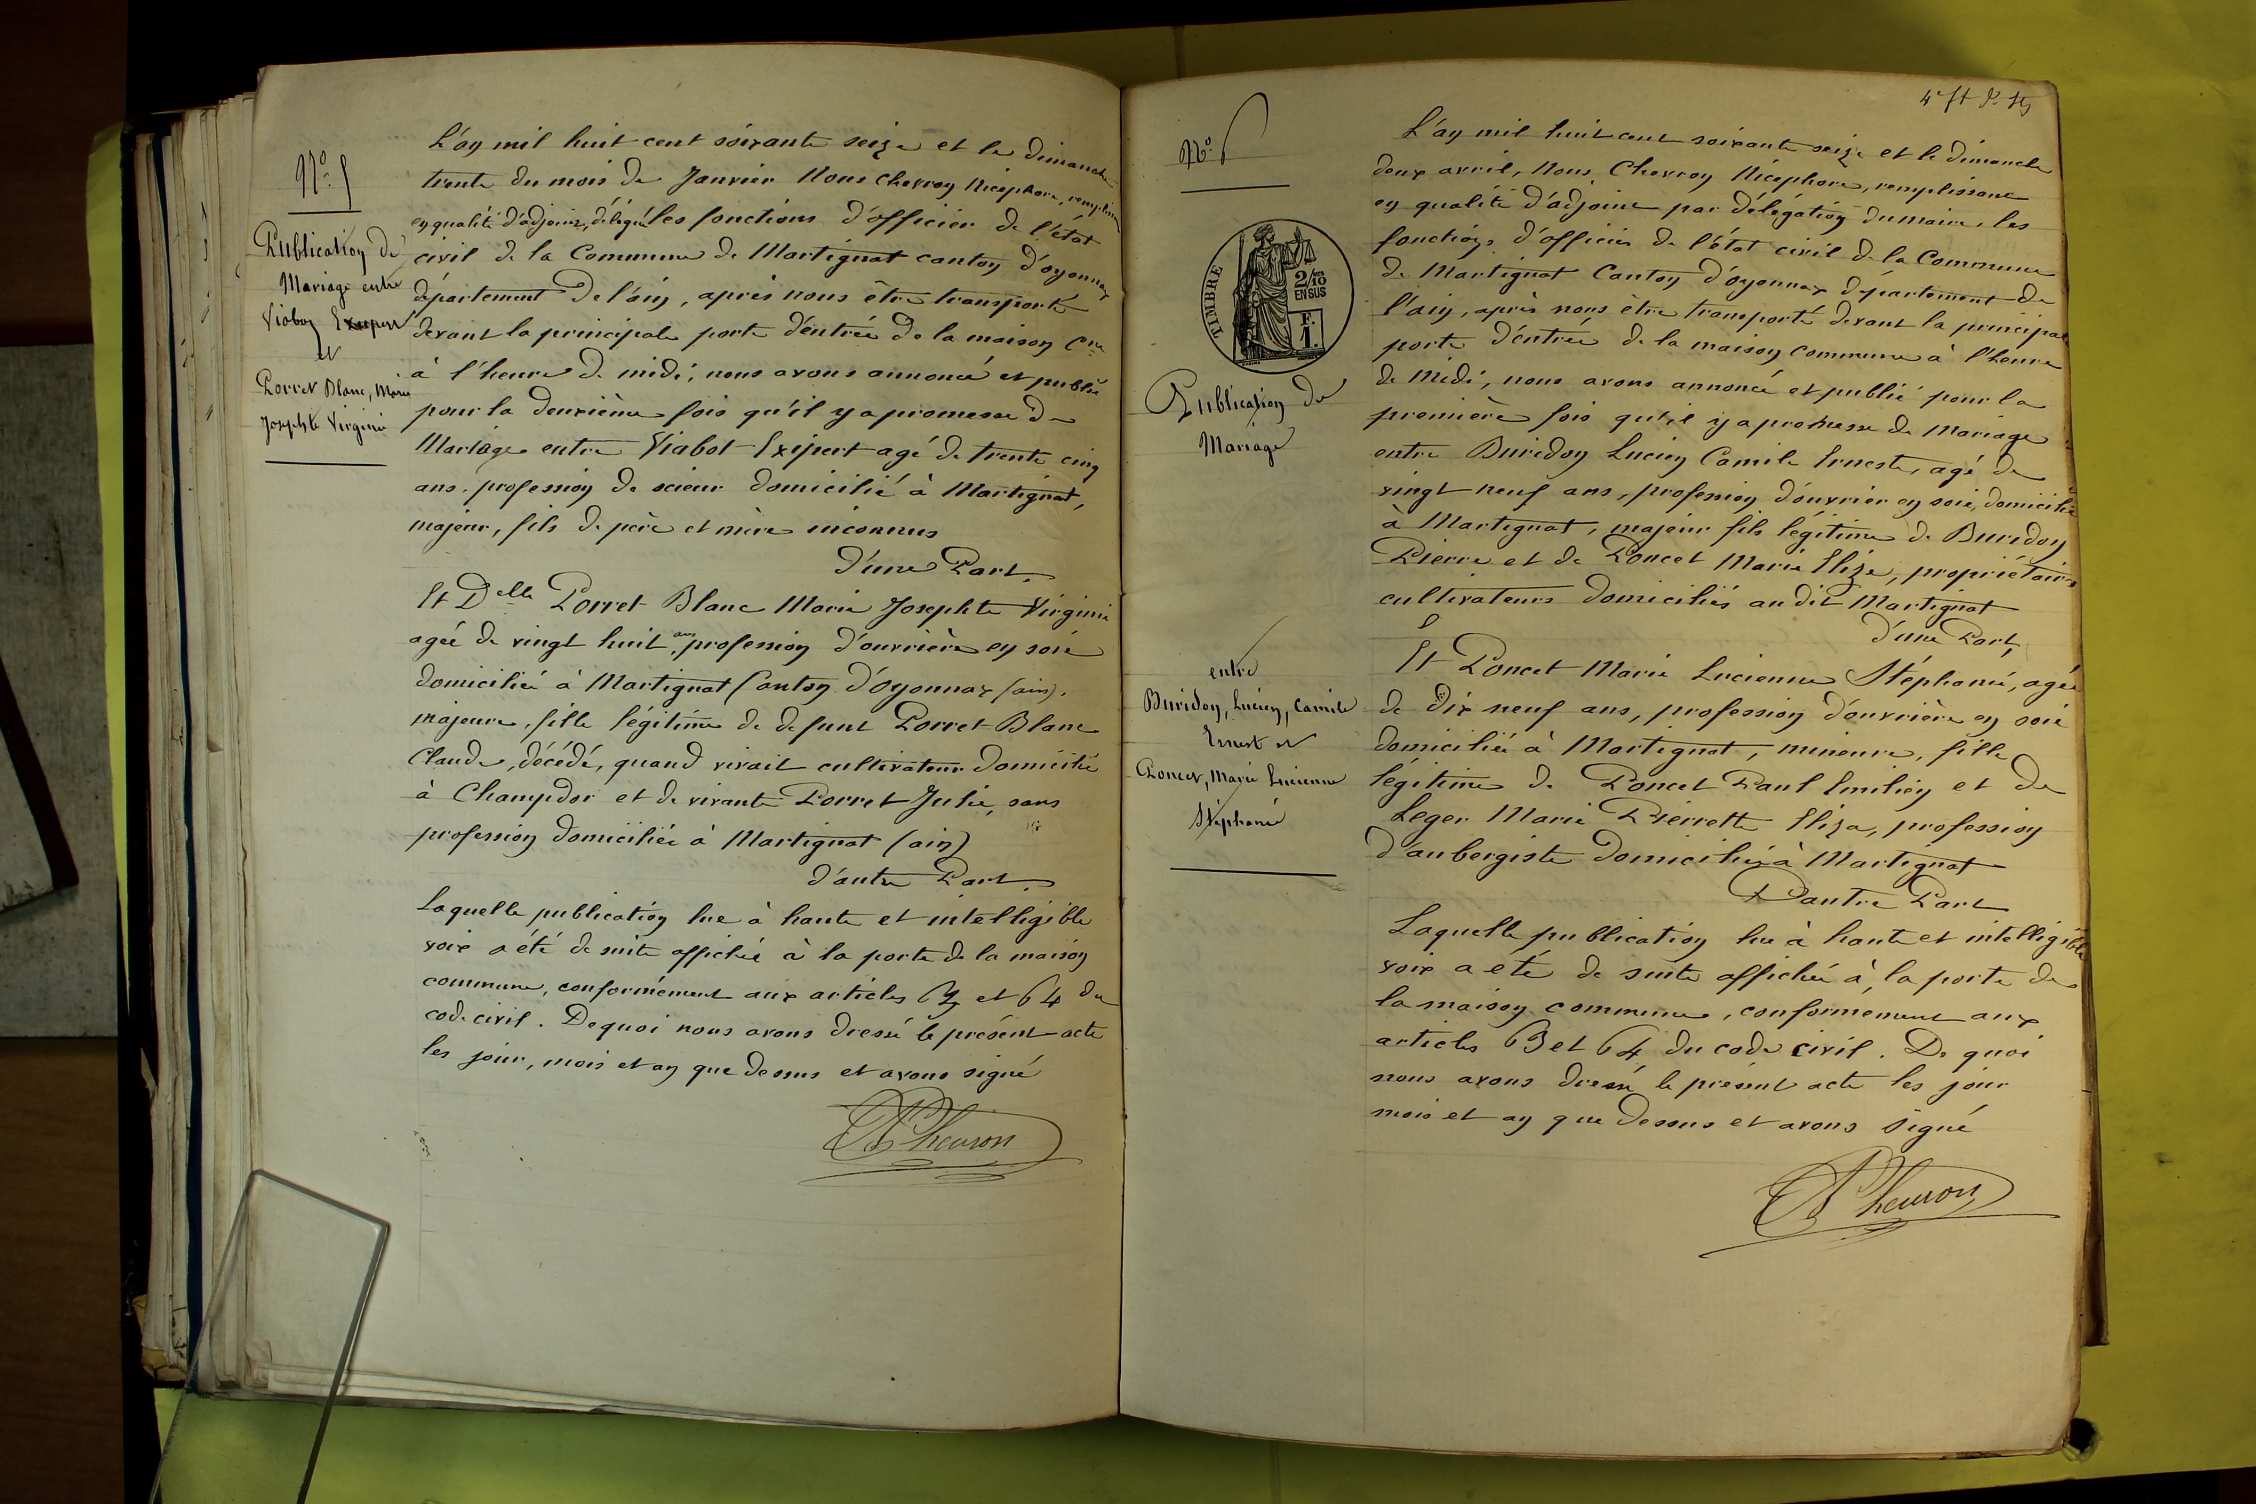 N° 5
Publication de
Mariage entre
Viaboz Exupert
et
Porret Blanc, Marie
Josephte Virginie
L'an mil huit cent soixante seize et le dimanche
trente du mois de Janvier Nous Chevron Nicéphore,
en qualité d'adjoint, délégué les fonctions d'officier de l'état
civil de la Commune de Martignat canton d'oyonnax
département De l'ain, après nous être transporté
devant la principale porte d'entrée de la maison Cne
à l'heure de midi, nous avons annoncé et publié
pour la deuxième fois qu'il y a promesse de
Mariage entre Viabot Exipert agé de trente cinq
ans. profession de scieur domicilié à Martignat,
majeur, fils de père et mère inconnus
D'une Part.
Et Delle Porret Blanc Marie Josephte Virginie
agée de vingt huit ans, profession d'ouvrière en soie
domiciliée à Martignat Canton d'Oyonnax (ain).
majeure, fille légitime de defunt Porret Blanc
Claude, décédé, quand vivait cultivateur domicilié
à Champdor et de vivante Porret Julie, sans
profession domiciliée à Martignat (ain)
d'autre Part.
Laquelle publication lue à haute et intelligible
voix a été de suite affichée à la porte de la maison
commune, conformément aux articles 63 et 64 du
code civil. De quoi nous avons dressé le présent acte
les jour, mois et an que dessus et avons signé
N Chevron
N° 6
TIMBRE
2/10
EN SUS
F.
1.
Publication de
Mariage
entre
Buridon, Lucien, Camile
Ernest et
Poncet, Marie Lucienne
Stéphanie
L'an mil huit cent soixante seize et le dimanche
deux avril, Nous Chevron Nicéphore, remplissant
en qualité d'adjoint par délégation du maire, les
fonctions d'officier de l'état civil de la Commune
de Martignat Canton d'Oyonnax département de
l'ain, après nous être transporté devant la principale
porte d'entrée de la maison commune à l'heure
de Midi, nous avons annoncé et publié pour la
première fois qu'il y a promesse de Mariage
entre Buridon Lucien Camile Erneste, agé de
vingt neuf ans, profession d'ouvrier en soie, domicilié
à Martignat, majeur fils légitime de Buridon
Pierre et de Poncet Marie Elize, propriétaires
cultivateurs domiciliés au dit Martignat
d'une Part,
Et Poncet Marie Lucienne Stéphanie, agée
de dix neuf ans, profession d'ouvrière en soie
domiciliée à Martignat, mineure, fille
légitime de Poncet Paul Emilien et de
Leger Marie Pierrette Eliza, profession
d'aubergiste domiciliés à Martignat
D'autre Part
Laquelle publication lue à haute et intelligible
voix a été de suite affichée à la porte de
la maison commune, conformément aux
articles 63 et 64 du code civil. De quoi
nous avons dressé le présent acte les jour
mois et an que dessus et avons signé
N Chevron